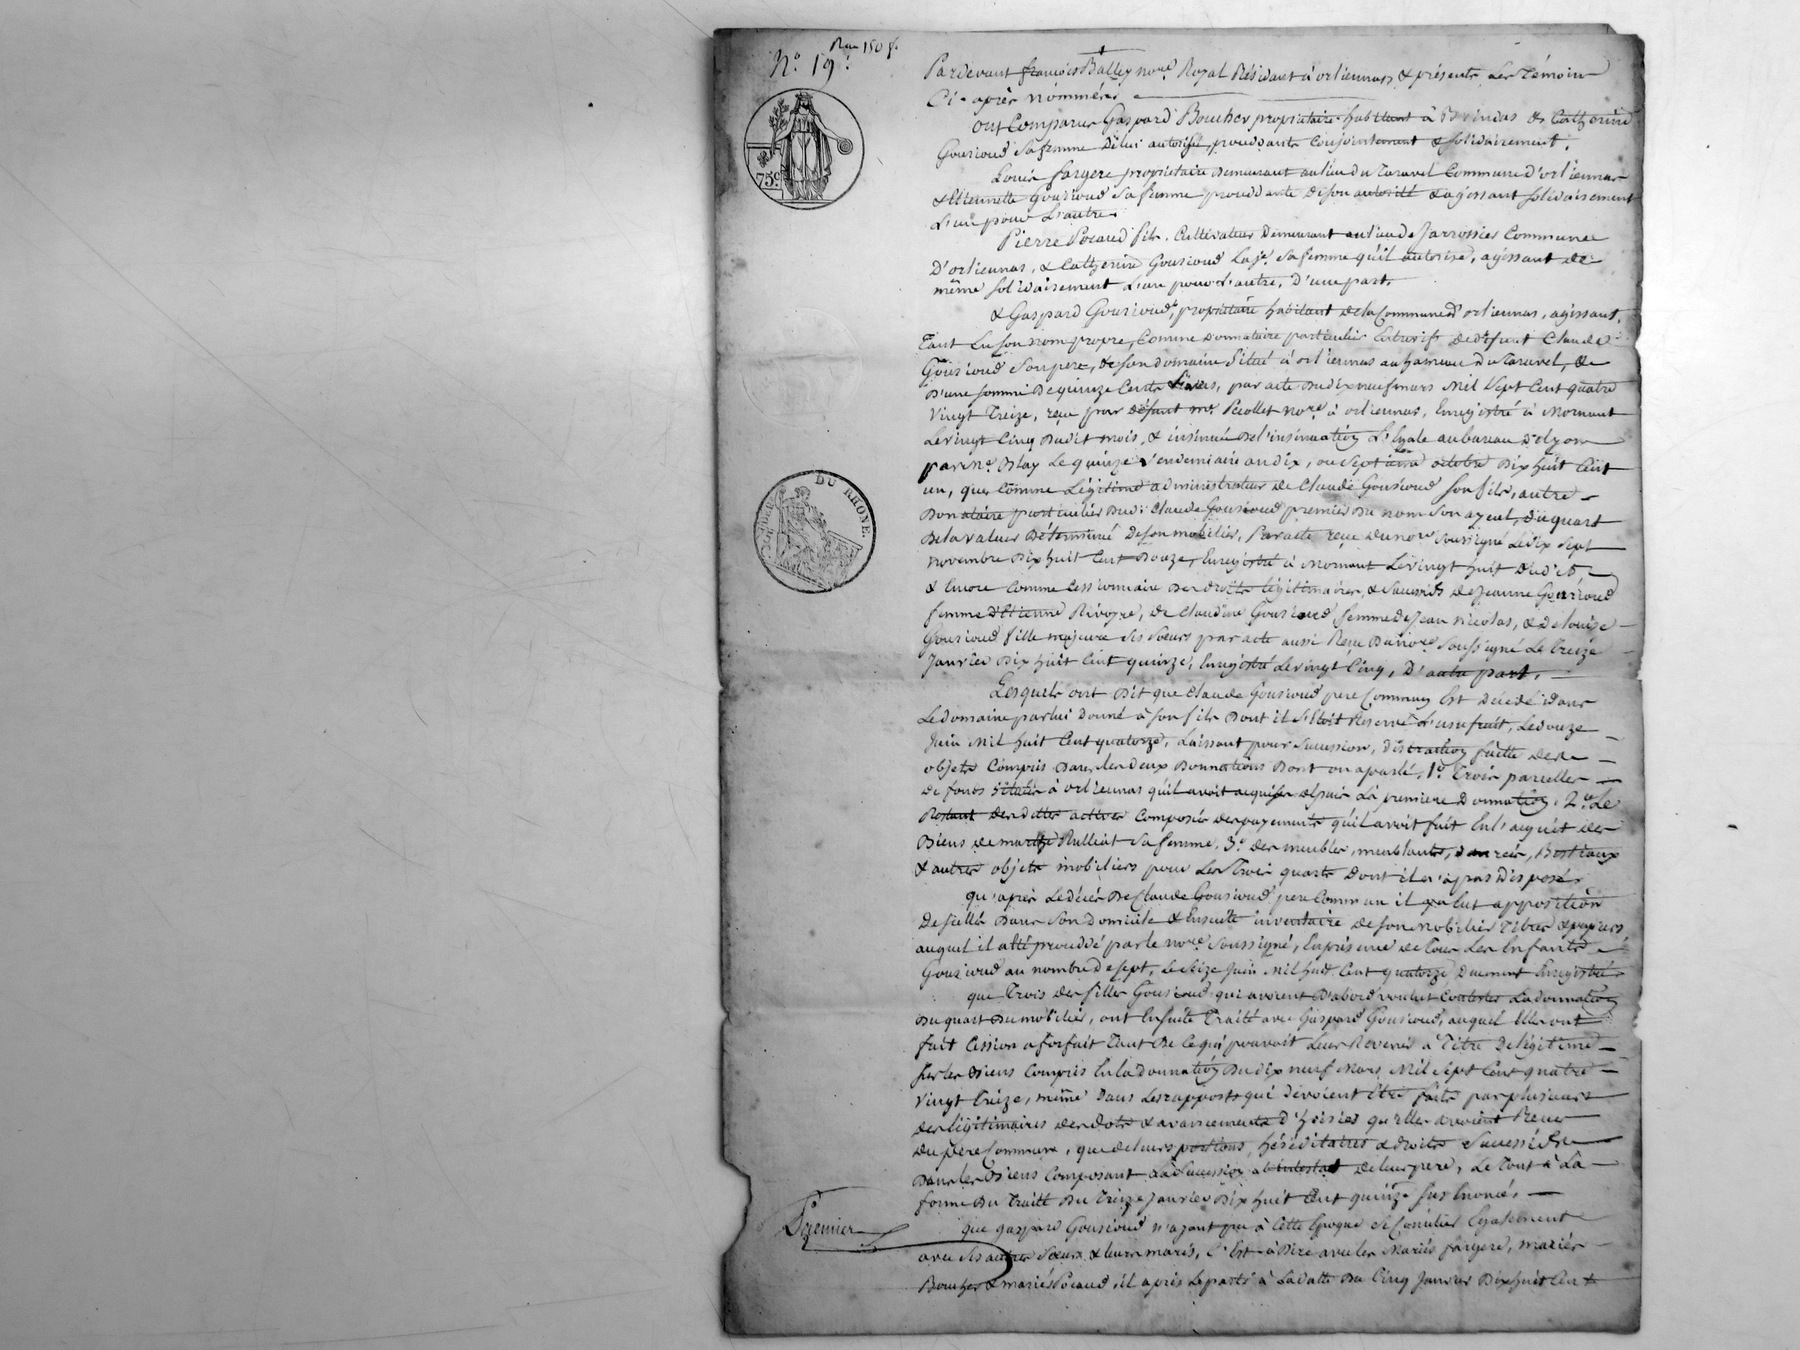 N.° 19.
150 f.
75 c
DU RHONE
Pardevant françois Balley no.re Royal Résidant à orliennas, & présents les Témoins
Ci-après nommés
ont Comparus Gaspard Boucher propriétaire habitant à Brindas & Catherine
Gouvioud Sa femme De lui autorisée, procédants Conjointement & solidairement.
Louis fargere propriétaire demeurant au lieu du Taravel Commune d'orliennas
& Etiennette Gouvioud Sa femme procédante de son autorité & agissant solidairement
L'un pour L'autre.
Pierre Pocaud fils. Cultivateur Demeurant au lieu de Jarrossies Commune
D'orliennas, & Catherine Gouvioud La j.e Sa femme qu'il autorise, agissant de
même solidairement L'un pour L'autre, D'une part.
& Gaspard Gouvioud, propriétaire habitant de la Commune d'orliennas, agissant,
Tant En son nom propre, Comme Donnataire particulier Entrevifs de défunt Claude
Gouvioud Son pere, de son domaine Situé à orliennas au hameau du Taravel, &
D'une somme de quinze Cents Livres, par acte du dix neuf mars Mil Sept Cent quatre
Vingt Treize, reçu par défunt me. Pcollet no.re à orliennas, Enregistré à Mornant
Le vingt Cinq Dudit mois, & insinué De l'insinuation Légale au bureau De lyon
par M.e Blay Le quinze Vendemiaire an dix, ou Sept octobre Dix huit Cent
un, que Comme Légitime administrateur de Claude Gouvioud son fils, autre
Donataire particulier Dud. Claude Gouvioud premier Du nom Son ayeul, Du quart
De la valeur Déterminée De son mobilier, Par acte reçu Du no.re soussigné Le Dix Sept
novembre Dix huit Cent Douze, Enregistré à Mornant Le vingt huit Dudit
& Encore Comme Cessionnaire Des Droits légitimaires, & Successifs de Jeanne Gouvioud
femme d'Etienne Rivoyre, de Claudine Gouvioud femme de Jean Nicolas, & de Louise
Gouvioud fille majeure Ses Soeurs par acte aussi Reçu Du no.re Soussigné Le Treize
Janvier Dix huit Cent quinze, Enregistré Le vingt Cinq, D'autre part.
Lesquels ont Dit que Claude Gouvioud pere Commun Est Décédé Dans
Le domaine par lui Donné à Son fils Dont il S'étoit Reservé L'usufruit, Le douze
Juin Mil huit Cent quatorze, Laissant pour Succession, distraction faitte des
objets Compris Dans les deux Donnations Dont on a parlé, 1.° Trois parcelles
de fonds situées à orliennas qu'il avoit acquises depuis La premiere Donnation. 2.° Le
Restant des dettes actives Composée des payements qu'il avoit fait En l'acquit des
Biens de marthe Rulliat Sa femme. 3.° des meubles, meublants, danrées, Bestiaux
& autres objets mobiliers pour Les Trois quarts Dont il n'a pas Disposé.
qu'après Le décés De Claude Gouvioud pere Commun il y a Eut apposition
De scellés Dans Son Domicile & Ensuite inventaire de son mobilier Titres & papiers,
auquel il a été procédé par le no.re Soussigné, En présence de Tous Les Enfants
Gouvioud au nombre de sept, Le Seize Juin Mil huit Cent quatorze Duement Enregistré.
que Trois des filles Gouvioud qui avoient D'abord voulut Contester La donnation
Du quart Du mobilier, ont Ensuite Traité avec Gaspard Gouvioud, auquel Elles ont
fait Cession a forfait Tant De Ce qui pouvoit Leur Revenir à Titre de légitime
sur les Biens Compris En la Donnation Du dix neuf Mars Mil Sept Cent quatre
Vingt Treize, même Dans Les rapports qui devoient Etre faits par plusieurs
des légitimaires des dots & avancements D'hoiries qu'elles avoient Reçu
du pere Commun, que de leurs portions héréditaires & droits Successifs
Dans les Biens Composant La Succession ab intestat de leur pere, Le Tout à La
forme Du Traité Du Treize Janvier Dix huit Cent quinze sus Enoncé.
que Gaspard Gouvioud n'ayant pu à Cette Epoque Se Concilier Egalement
avec Ses autres Soeurs & leurs maris, C'Est à Dire avec les Mariés fargere, mariés
Boucher & mariés Pocaud, il a après Le parti à La datte Du Cinq Janvier Dix huit Cent
Premier